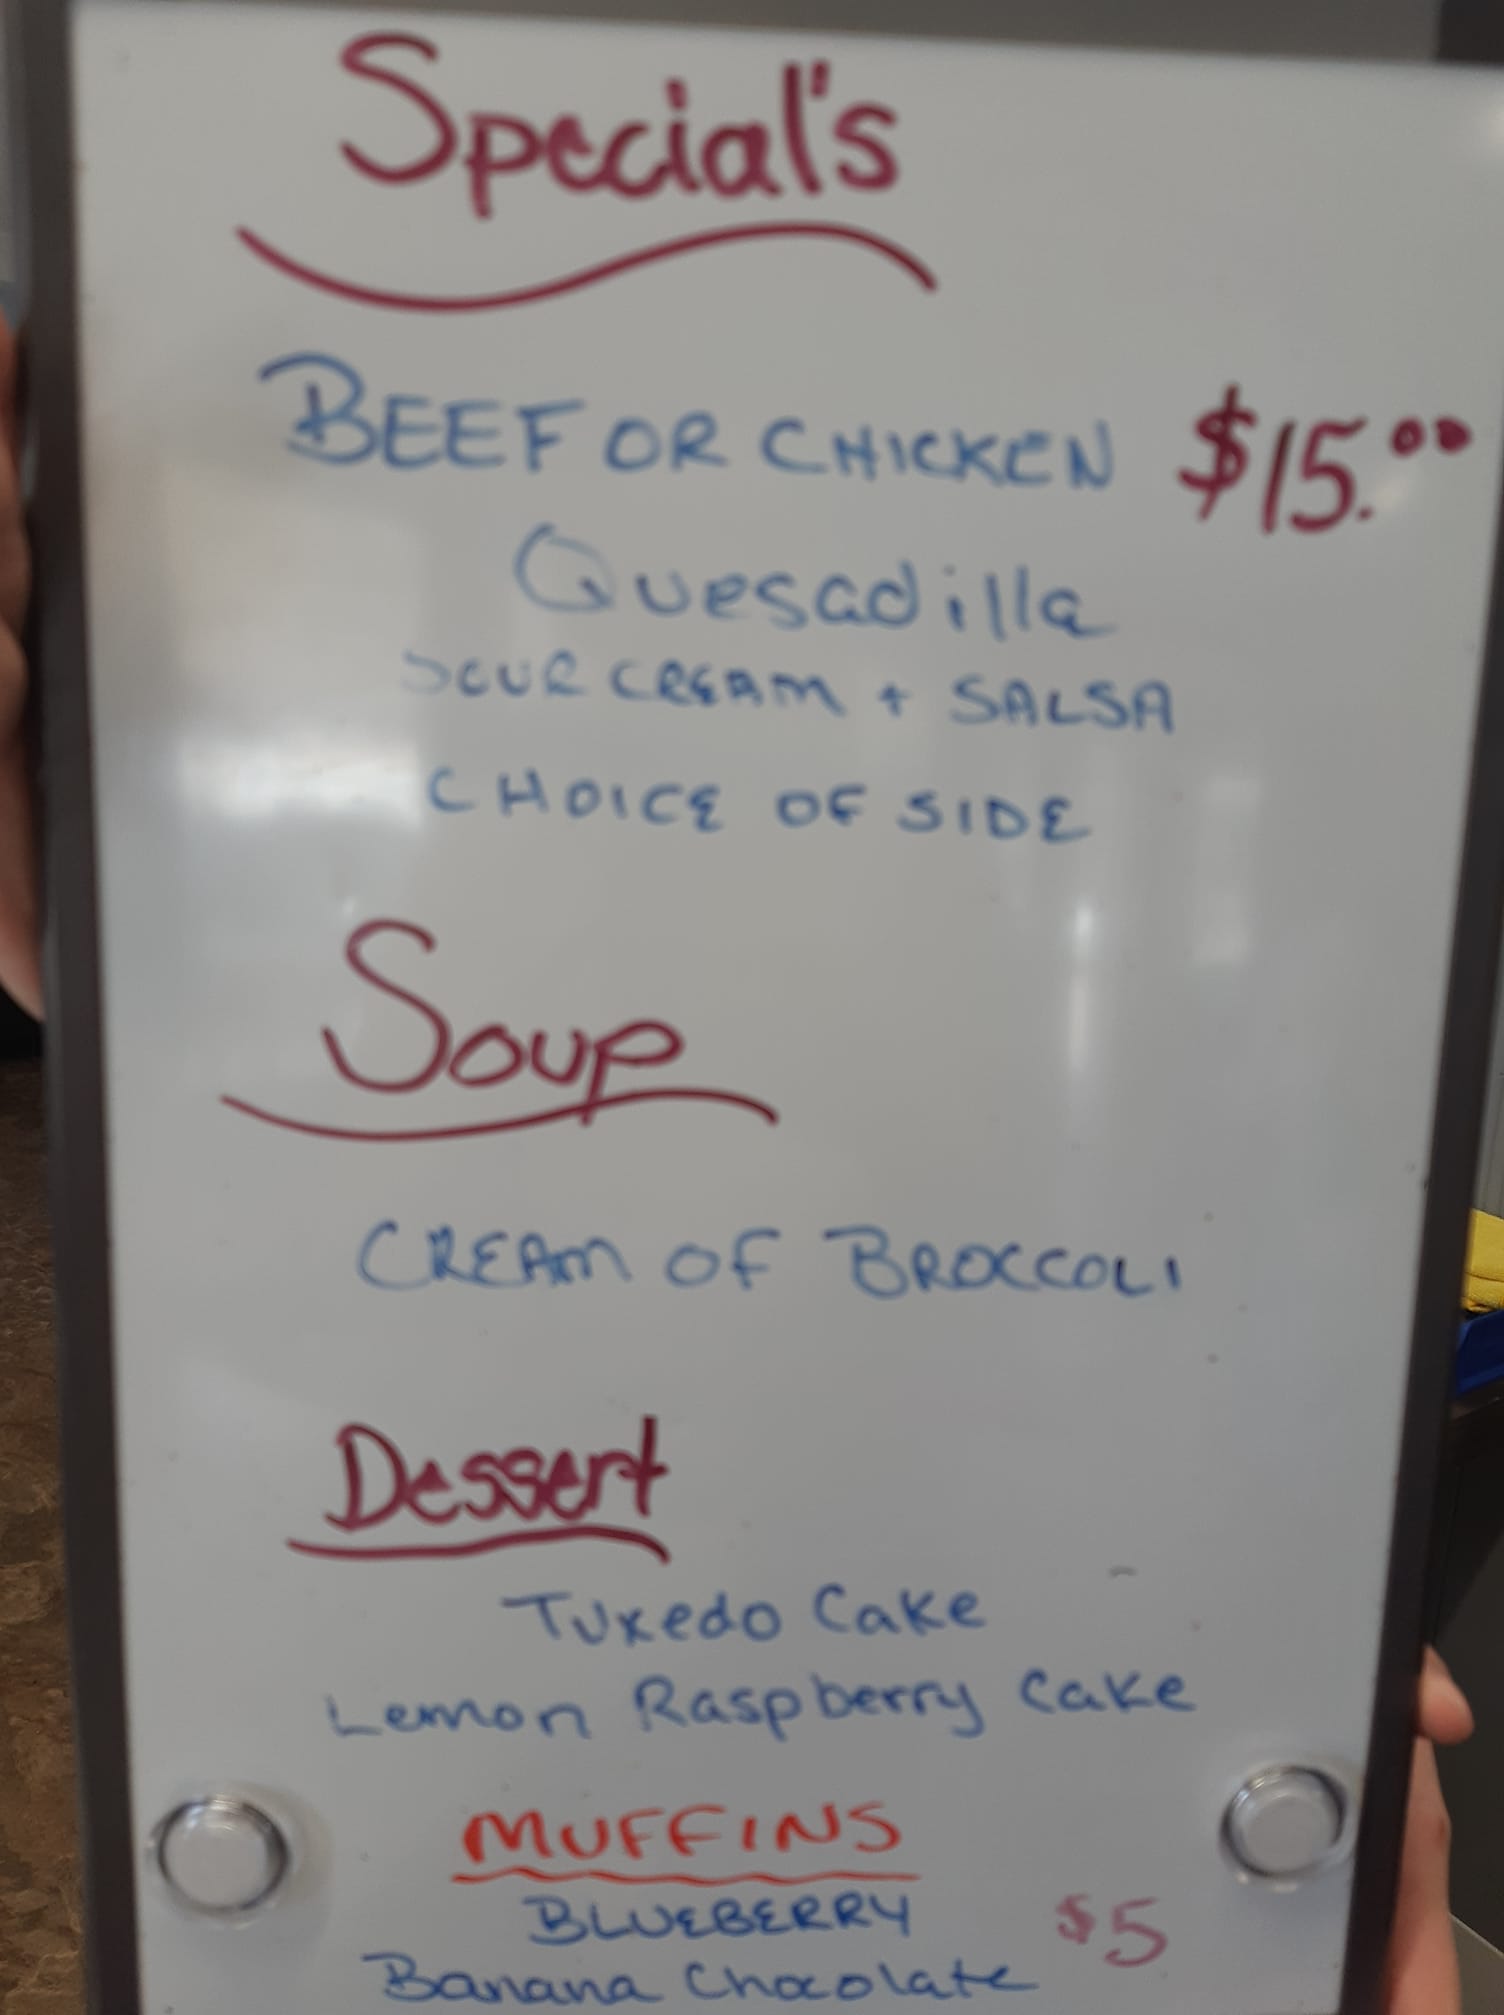 Special's
BEEF OR CHICKEN $15.00
Quesadilla
SOUR CREAM + SALSA
CHOICE OF SIDE
Soup
CREAM OF BROCCOLI
Dessert
Tuxedo Cake
Lemon Raspberry Cake
MUFFINS
BLUEBERRY $5
Banana Chocolate